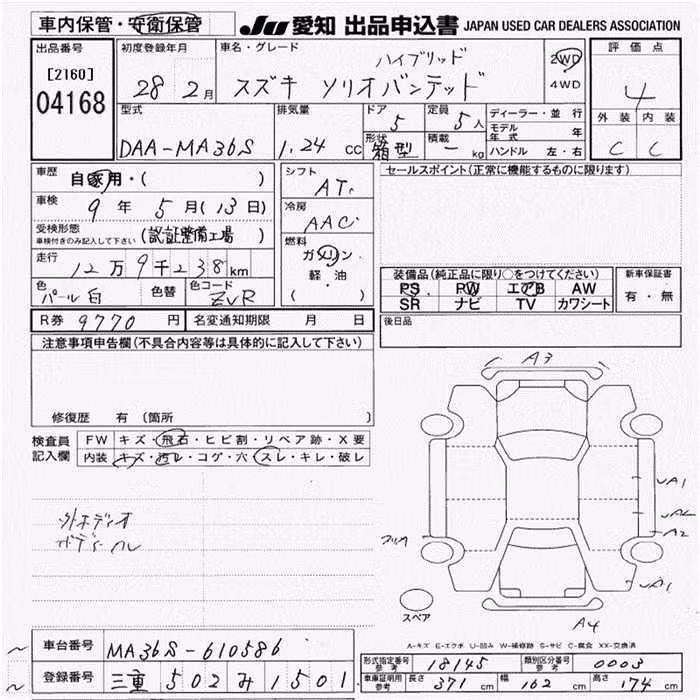 車内保管・安衛保管
JU 愛知 出品申込書 JAPAN USED CAR DEALERS ASSOCIATION
出品番号
[2160]
04168
初度登録年月
28 2月
車名・グレード
ハイブリッド
スズキ ソリオバンデッド
2WD
4WD
評価点
4
外装 内装
C C
型式
DAA-MA36S
排気量
1.24 cc
ドア
5
定員
5人
形状
箱型
積載
- kg
ディーラー・並行
モデル年式 年
ハンドル 左・右
車歴
自家用・( )
車検
9年 5月(13日)
受検形態
車検付きのみ記入して下さい
(認証整備工場)
走行
12万9千238km
色
パール白
色替
色コード
ZVR
シフト
AT
冷房
AAC
燃料
ガソリン
軽・油
( )
セールスポイント(正常に機能するものに限ります)
装備品(純正品に限り○をつけてください)
PS PW エアB AW
SR ナビ TV カワシート
新車保証書
有・無
R券 9770円
名変通知期限 月 日
後日品
注意事項申告欄(不具合内容等は具体的に記入して下さい)
修復歴 有 (箇所
検査員
記入欄
FW キズ・飛石・ヒビ割・リペア跡・X要
内装 キズ・汚レ・コゲ・穴・スレ・キレ・破レ
外オーディオ
A3
UA1
A2
UA1
A4
スペア
A-キズ E-エクボ U-凹み W-補修跡 S-サビ C-腐食 XX-交換済
車台番号 MA36S-610586
登録番号 三重 502 み 1501
形式指定番号 参考 18145
類別区分番号 参考 0003
車庫証明用 参考 長さ 371cm 幅 162cm 高さ 174cm